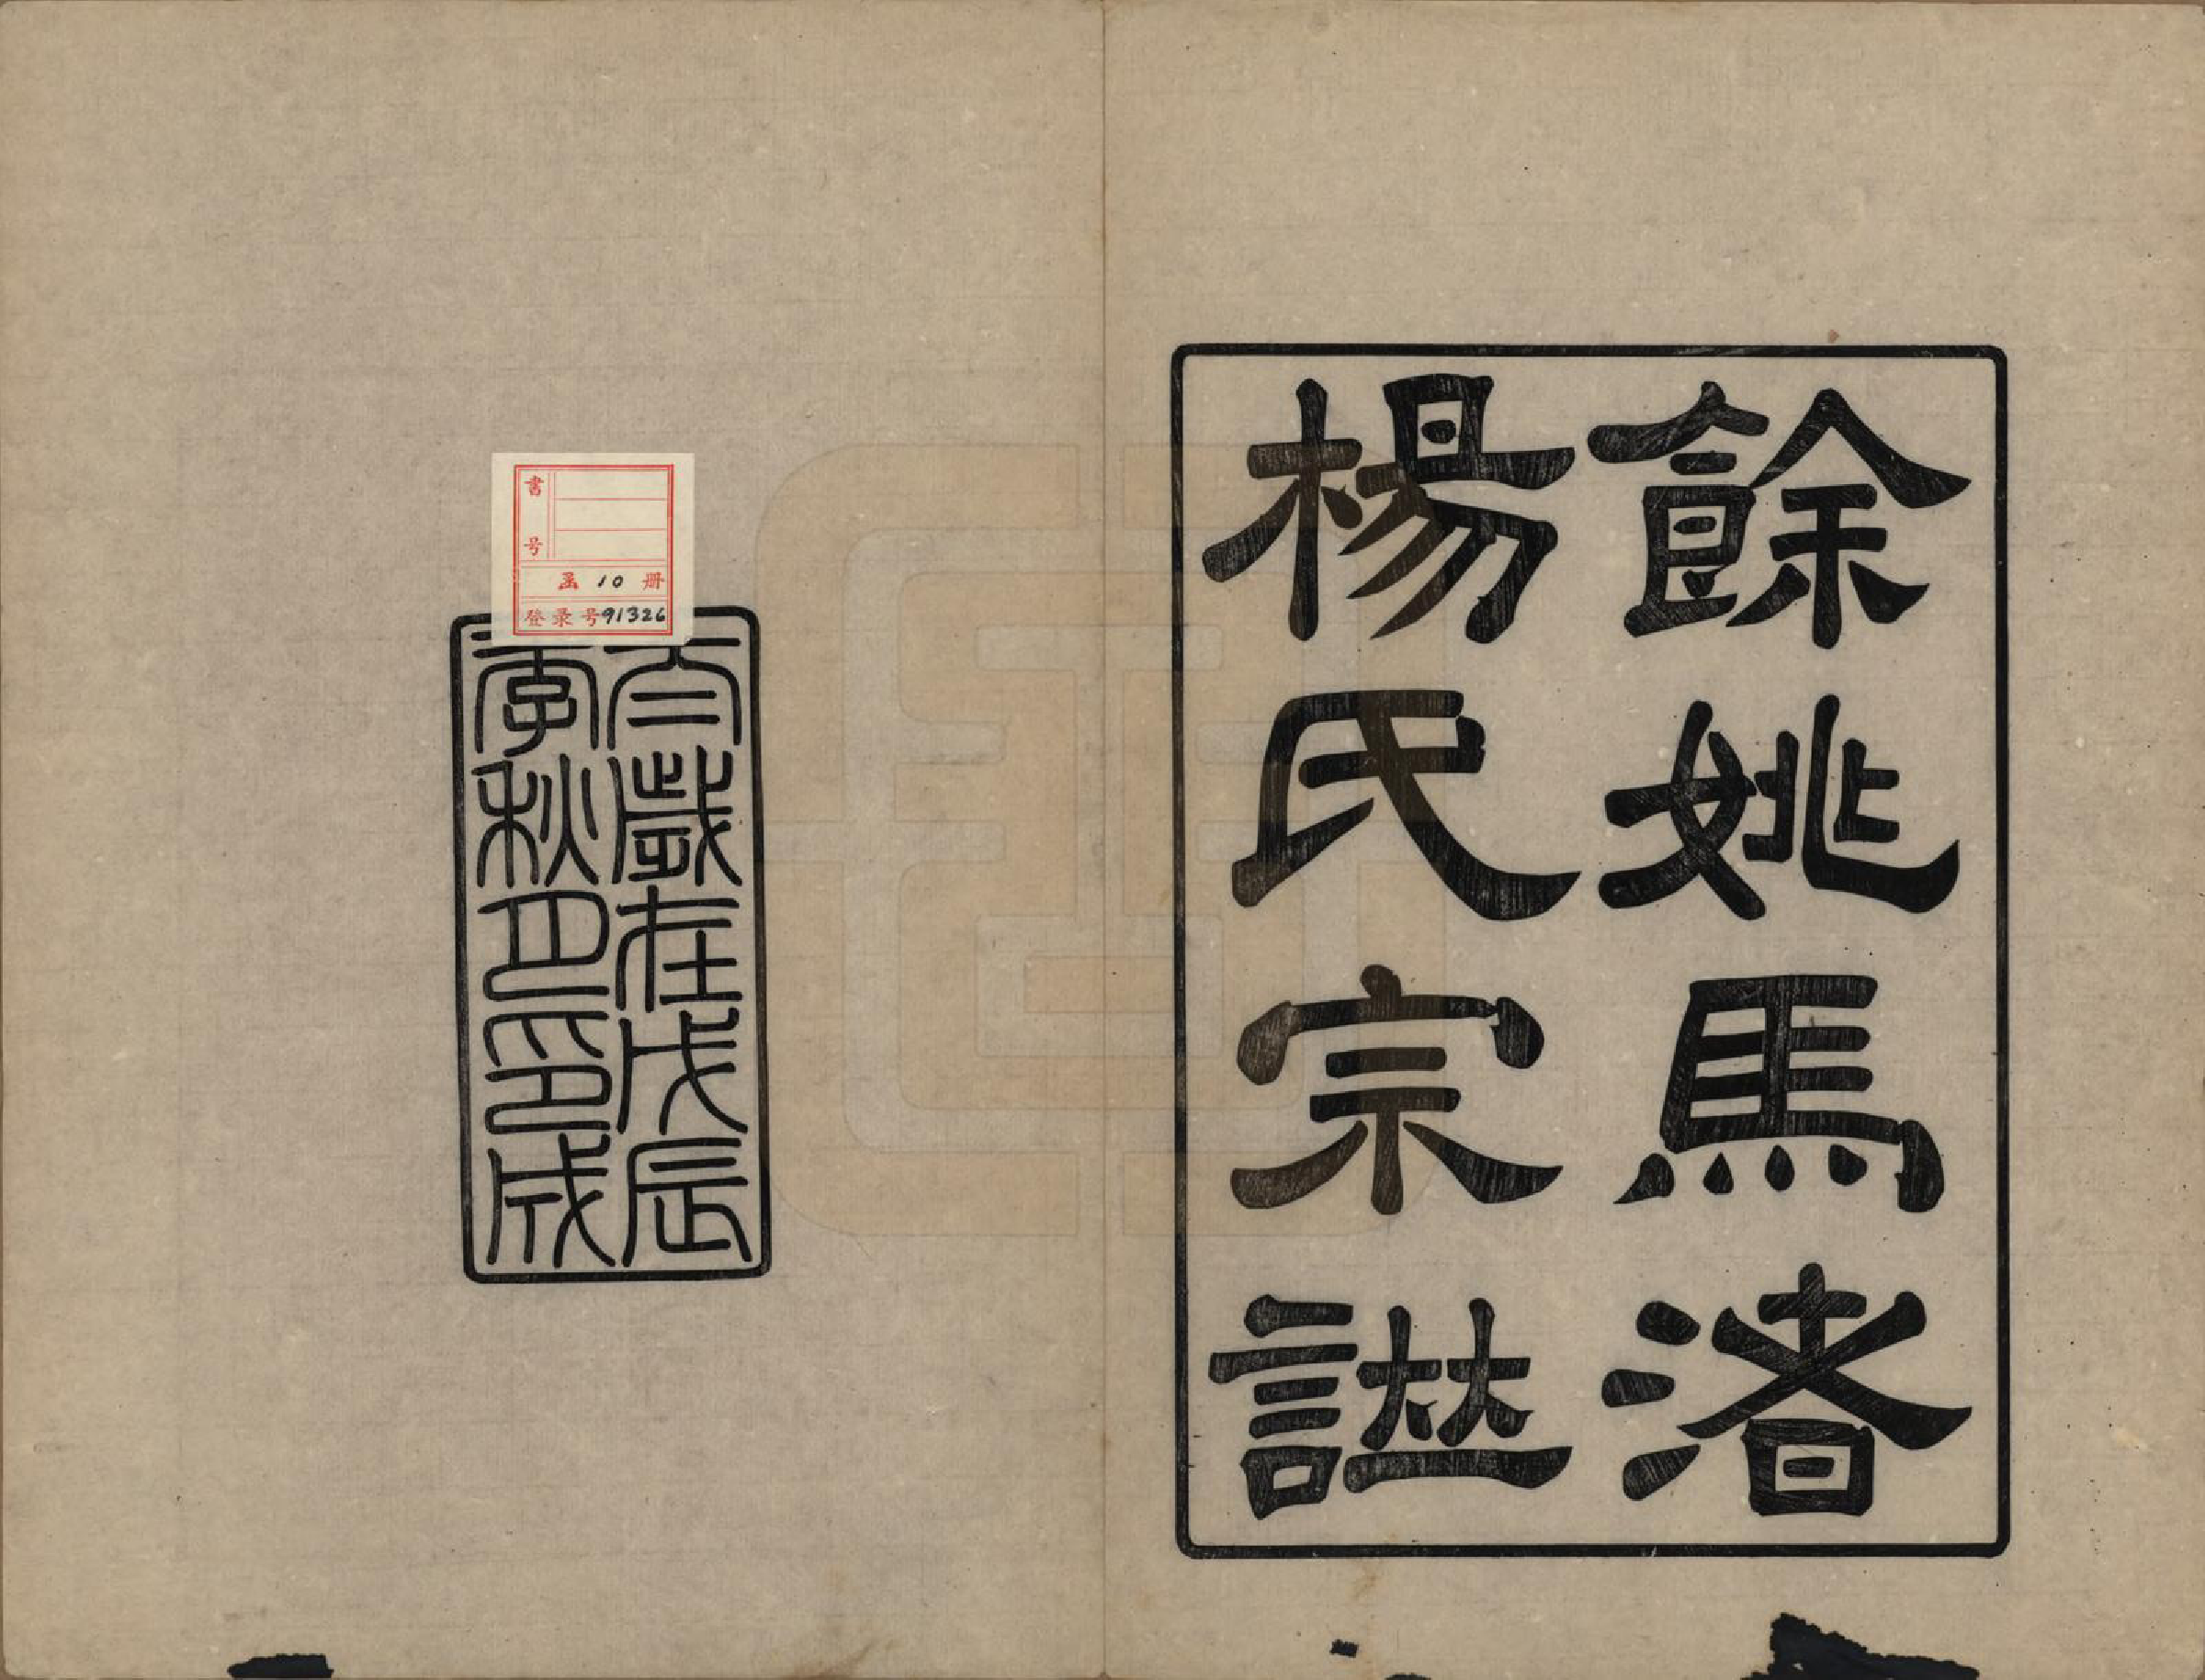 餘姚馬渚
楊氏宗譜
太歲在戊辰
季秋月印成
書号
函 10 册
登录号91326